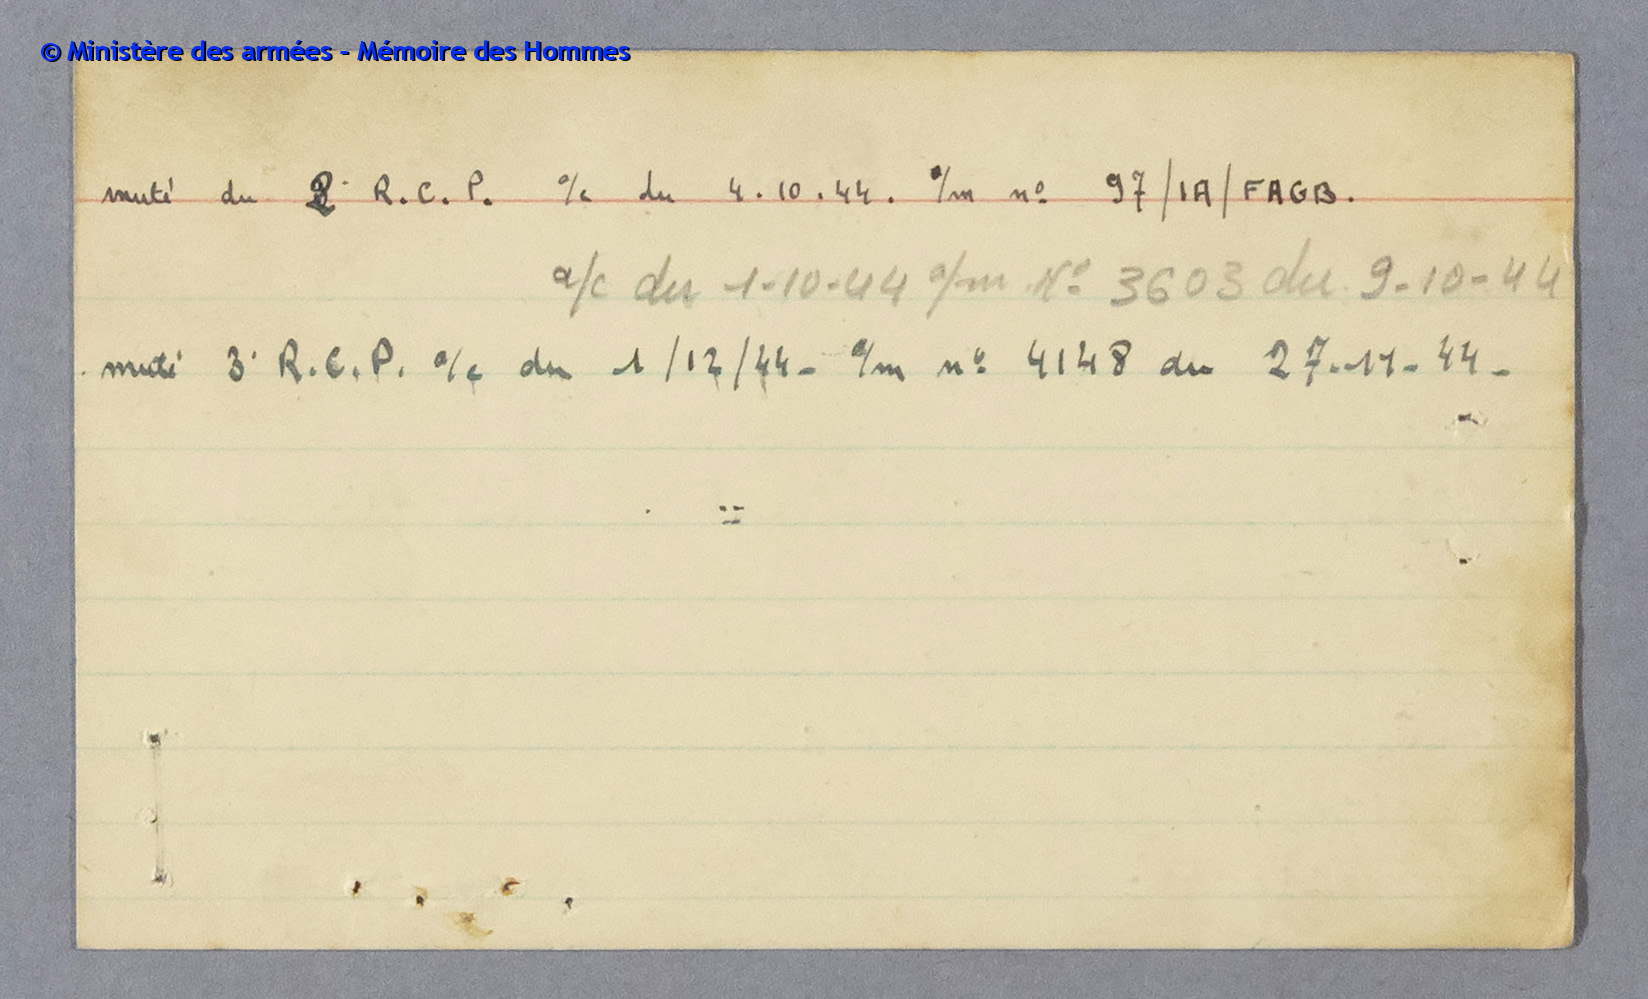 © Ministère des armées - Mémoire des Hommes
muté du 2e R.C.P. a/c du 4.10.44. o/m no 97/IA/FAGB.
a/c du 1-10-44 o/m No 3603 du 9-10-44
muté 3e R.C.P. a/c du 1/12/44- o/m no 4148 du 27-11-44-